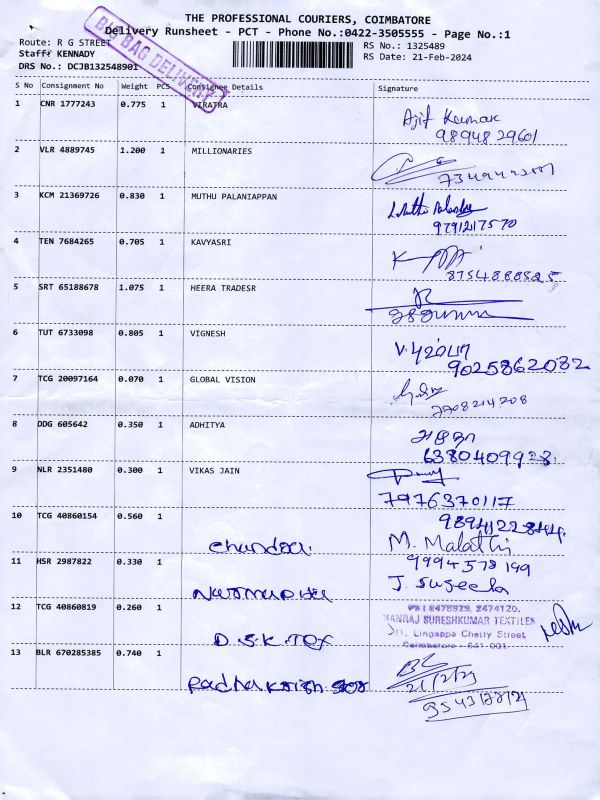 THE PROFESSIONAL COURIERS, COIMBATORE
Delivery Runsheet - PCT - Phone No.:0422-3505555 - Page No.:1
Route: R G STREET
RS No.: 1325489
Staff: KENNADY
RS Date: 21-Feb-2024
DRS No.: DCJB132548901
BIG BAG DELIVERY
S No Consignment No Weight PCS Consignee Details Signature
1 CNR 1777243 0.775 1 VIRATRA
Ajit Kumar
9894829601
2 VLR 4889745 1.200 1 MILLIONARIES
3 KCM 21369726 0.830 1 MUTHU PALANIAPPAN
9791217570
4 TEN 7684265 0.705 1 KAVYASRI
8754888525
5 SRT 65188678 1.075 1 HEERA TRADESR
6 TUT 6733098 0.805 1 VIGNESH
9025862082
7 TCG 20097164 0.070 1 GLOBAL VISION
8 DDG 605642 0.350 1 ADHITYA
6380409928
9 NLR 2351480 0.300 1 VIKAS JAIN
7976370117
10 TCG 40860154 0.560 1
M. Malathi
11 HSR 2987822 0.330 1
9994578199
J. Sujeela
12 TCG 40860819 0.260 1 D.S.K. Tex
MANRAJ SURESHKUMAR TEXTILES
Lingappa Chetty Street
Coimbatore - 641 001
13 BLR 670285385 0.740 1
21/2/24